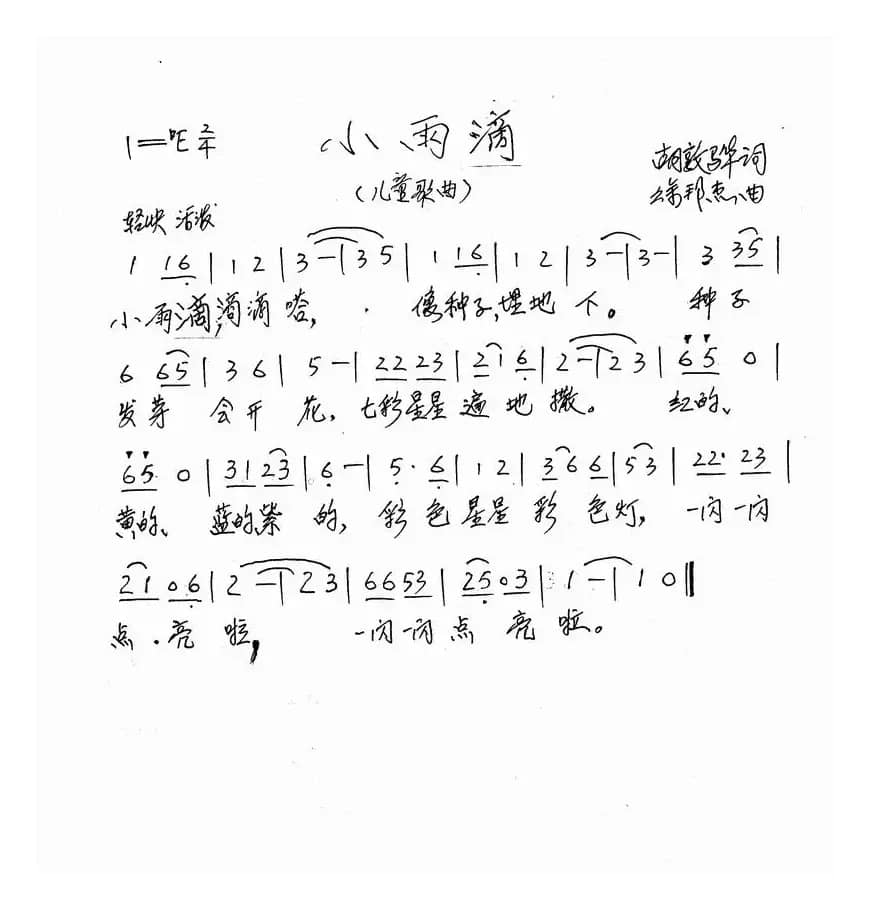 小雨滴
1=♭E 2/4
（儿童歌曲）
胡敦骅词
徐邦杰曲
轻快 活泼
1 16 | 1 2 | 3 – | 3 5 | 1 16 | 1 2 | 3 – | 3 – | 3 35 |
小雨滴,滴滴 嗒, 像种子,埋地 下。 种子
6 65 | 3 6 | 5 – | 22 23 | 21 6 | 2 – | 2 3 | 65 0 |
发芽 会开 花, 七彩星星遍地 撒。 红的、
65 0 | 31 23 | 6 – | 5· 6 | 1 2 | 36 6 | 53 | 22· 23 |
黄的、 蓝的紫 的, 彩色星星彩 色灯, 一闪一闪
21 06 | 2 – | 2 3 | 66 53 | 25 03 | 1 – | 1 0 ||
点 亮 啦, 一闪一闪点 亮 啦。